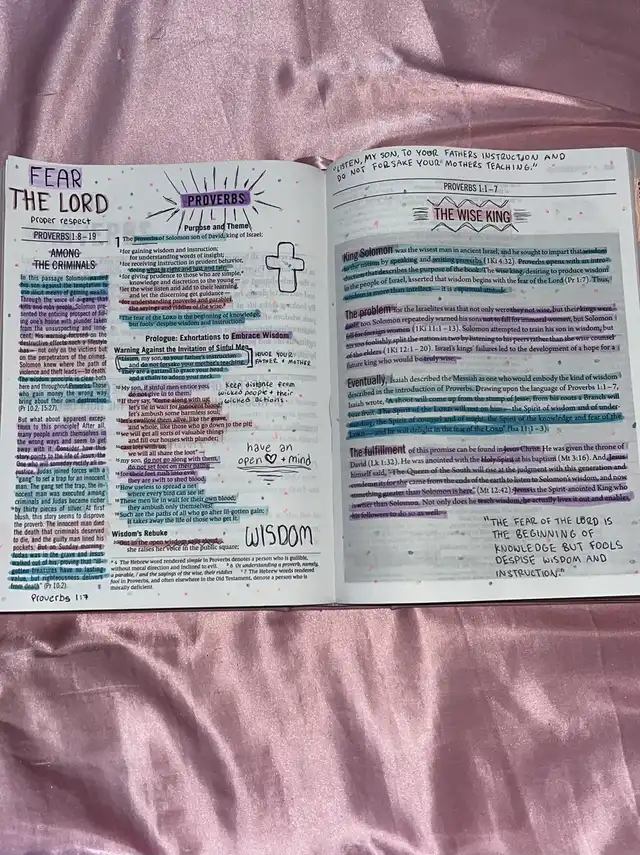 FEAR
THE LORD
proper respect
PROVERBS 1:8–19
AMONG
THE CRIMINALS
In this passage Solomon
his son against the temptation
the illicit means of gaining wealth.
But what about apparent exceptions
to this principle? After all,
many people enrich themselves
the wrong way and seem to get
away with it. Consider how the
story points to the life of Jesus.
One who will someday rectify all
justice. Judas joined forces with a
"gang" to set a trap for an innocent
man. The gang set the trap, the innocent
man was executed among
criminals and Judas became richer
by thirty pieces of silver. At first
blush, this story seems to disprove
the proverb. The innocent man died
the death that criminals deserved
to die, and the guilty man lined his
pockets. But on Sunday morning
Judas was in the grave and Jesus
walked out of his, proving that "Ill-
gotten treasures have no lasting
value, but righteousness delivers
from death" (Pr 10:2).
Proverbs 1:7
PROVERBS
Purpose and Theme
1 The proverbs of Solomon son of David, king of Israel:
2 for gaining wisdom and instruction;
for understanding words of insight;
3 for receiving instruction in prudent behavior,
doing what is right and just and fair;
4 for giving prudence to those who are simple,
knowledge and discretion to the young—
5 let the wise listen and add to their learning,
and let the discerning get guidance—
6 for understanding proverbs and parables,
the sayings and riddles of the wise.
7 The fear of the LORD is the beginning of knowledge,
but fools despise wisdom and instruction.
Prologue: Exhortations to Embrace Wisdom
Warning Against the Invitation of Sinful Men
8 Listen, my son, to your father's instruction
and do not forsake your mother's teaching.
9 They are a garland to grace your head
and a chain to adorn your neck.
HONOR YOUR
FATHER + MOTHER
10 My son, if sinful men entice you,
do not give in to them.
11 If they say, "Come along with us;
let's lie in wait for innocent blood,
let's ambush some harmless soul;
12 let's swallow them alive, like the grave,
and whole, like those who go down to the pit;
13 we will get all sorts of valuable things
and fill our houses with plunder;
14 cast lots with us;
we will all share the loot"—
15 my son, do not go along with them,
do not set foot on their paths;
16 for their feet rush into evil,
they are swift to shed blood.
17 How useless to spread a net
where every bird can see it!
18 These men lie in wait for their own blood;
they ambush only themselves!
19 Such are the paths of all who go after ill-gotten gain;
it takes away the life of those who get it.
Keep distance from
wicked people + their
wicked actions.
have an
open ♡ + mind
WISDOM
Wisdom's Rebuke
20 Out in the open wisdom calls aloud,
she raises her voice in the public square;
a 4 The Hebrew word rendered simple in Proverbs denotes a person who is gullible,
without moral direction and inclined to evil. b 6 Or understanding a proverb, namely,
a parable, / and the sayings of the wise, their riddles c 7 The Hebrew words rendered
fool in Proverbs, and often elsewhere in the Old Testament, denote a person who is
morally deficient.
"LISTEN, MY SON, TO YOUR FATHERS INSTRUCTION AND
DO NOT FORSAKE YOUR MOTHERS TEACHING."
PROVERBS 1:1–7
THE WISE KING
King Solomon was the wisest man in ancient Israel, and he sought to impart that wisdom
to others by speaking and writing proverbs (1Ki 4:32). Proverbs opens with an intro-
duction that describes the purpose of the book. The wise king, desiring to produce wisdom
in the people of Israel, asserted that wisdom begins with the fear of the Lord (Pr 1:7). Thus,
The problem for the Israelites was that not only were they not wise, but their kings weren't
either, too. Solomon repeatedly warned his sons not to fall for immoral women, but Solomon
fell for many women (1Ki 11:1–13). Solomon attempted to train his son in wisdom, but
his son foolishly split the nation in two by listening to his peers rather than the wise counsel
of the elders (1Ki 12:1–20). Israel's kings' failures led to the development of a hope for a
future king who would be truly wise.
Eventually, Isaiah described the Messiah as one who would embody the kind of wisdom
described in the introduction of Proverbs. Drawing upon the language of Proverbs 1:1–7,
Isaiah wrote, "A shoot will come up from the stump of Jesse; from his roots a Branch will
bear fruit. The Spirit of the LORD will rest on him—the Spirit of wisdom and of under-
standing, the Spirit of counsel and of might, the Spirit of the knowledge and fear of the
LORD—and he will delight in the fear of the LORD" (Isa 11:1–3).
The fulfillment of this promise can be found in Jesus Christ. He was given the throne of
David (Lk 1:32). He was anointed with the Holy Spirit at his baptism (Mt 3:16). And Jesus
himself said, "The Queen of the South will rise at the judgment with this generation and
condemn it; for she came from the ends of the earth to listen to Solomon's wisdom, and now
something greater than Solomon is here" (Mt 12:42). Jesus is the Spirit-anointed King who
is wiser than Solomon. Not only does he teach wisdom, but he perfectly lives it out and enables
his followers to do so as well.
"THE FEAR OF THE LORD IS
THE BEGINNING OF
KNOWLEDGE BUT FOOLS
DESPISE WISDOM AND
INSTRUCTION."